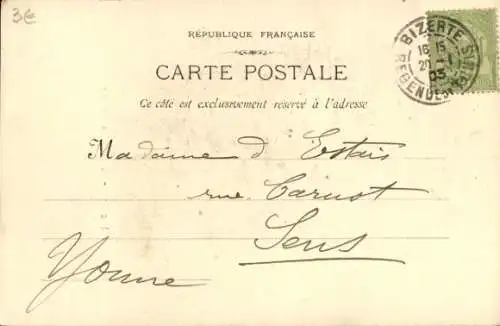 3€
RÉPUBLIQUE FRANÇAISE
CARTE POSTALE
Ce côté est exclusivement réservé à l'adresse
BIZERTE
16 15
20 - 1
03
REGENCE
Madame d'Estais
rue Carnot
Sens
Yonne